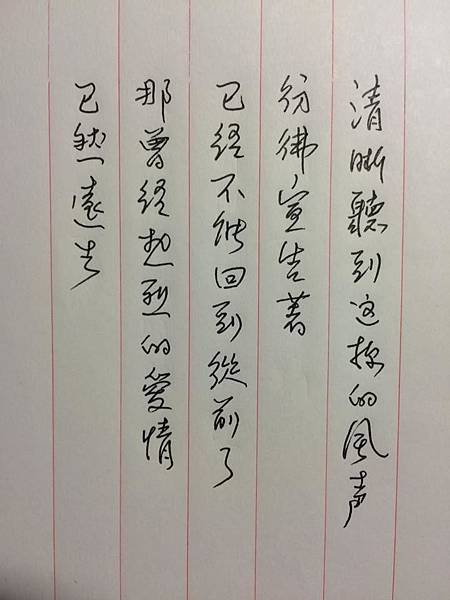 清晰聽到这样的風声
彷彿宣告著
已经不能回到從前了
那曾经想烈的愛情
已然遠去